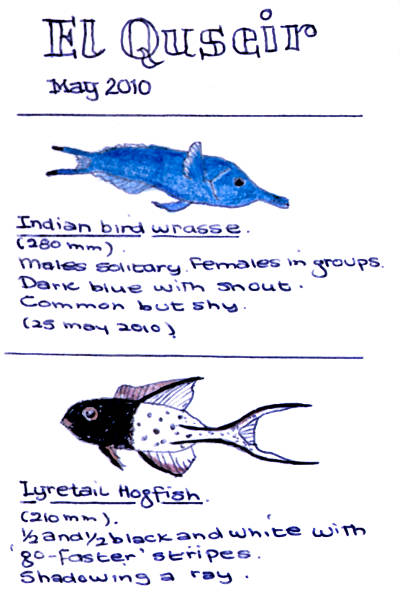 El Quseir
May 2010
Indian bird wrasse.
(280 mm).
Males solitary. Females in groups.
Dark blue with snout.
Common but shy.
(25 May 2010)
Lyretail Hogfish.
(210mm).
½ and ½ black and white with
'go-faster' stripes.
Shadowing a ray.